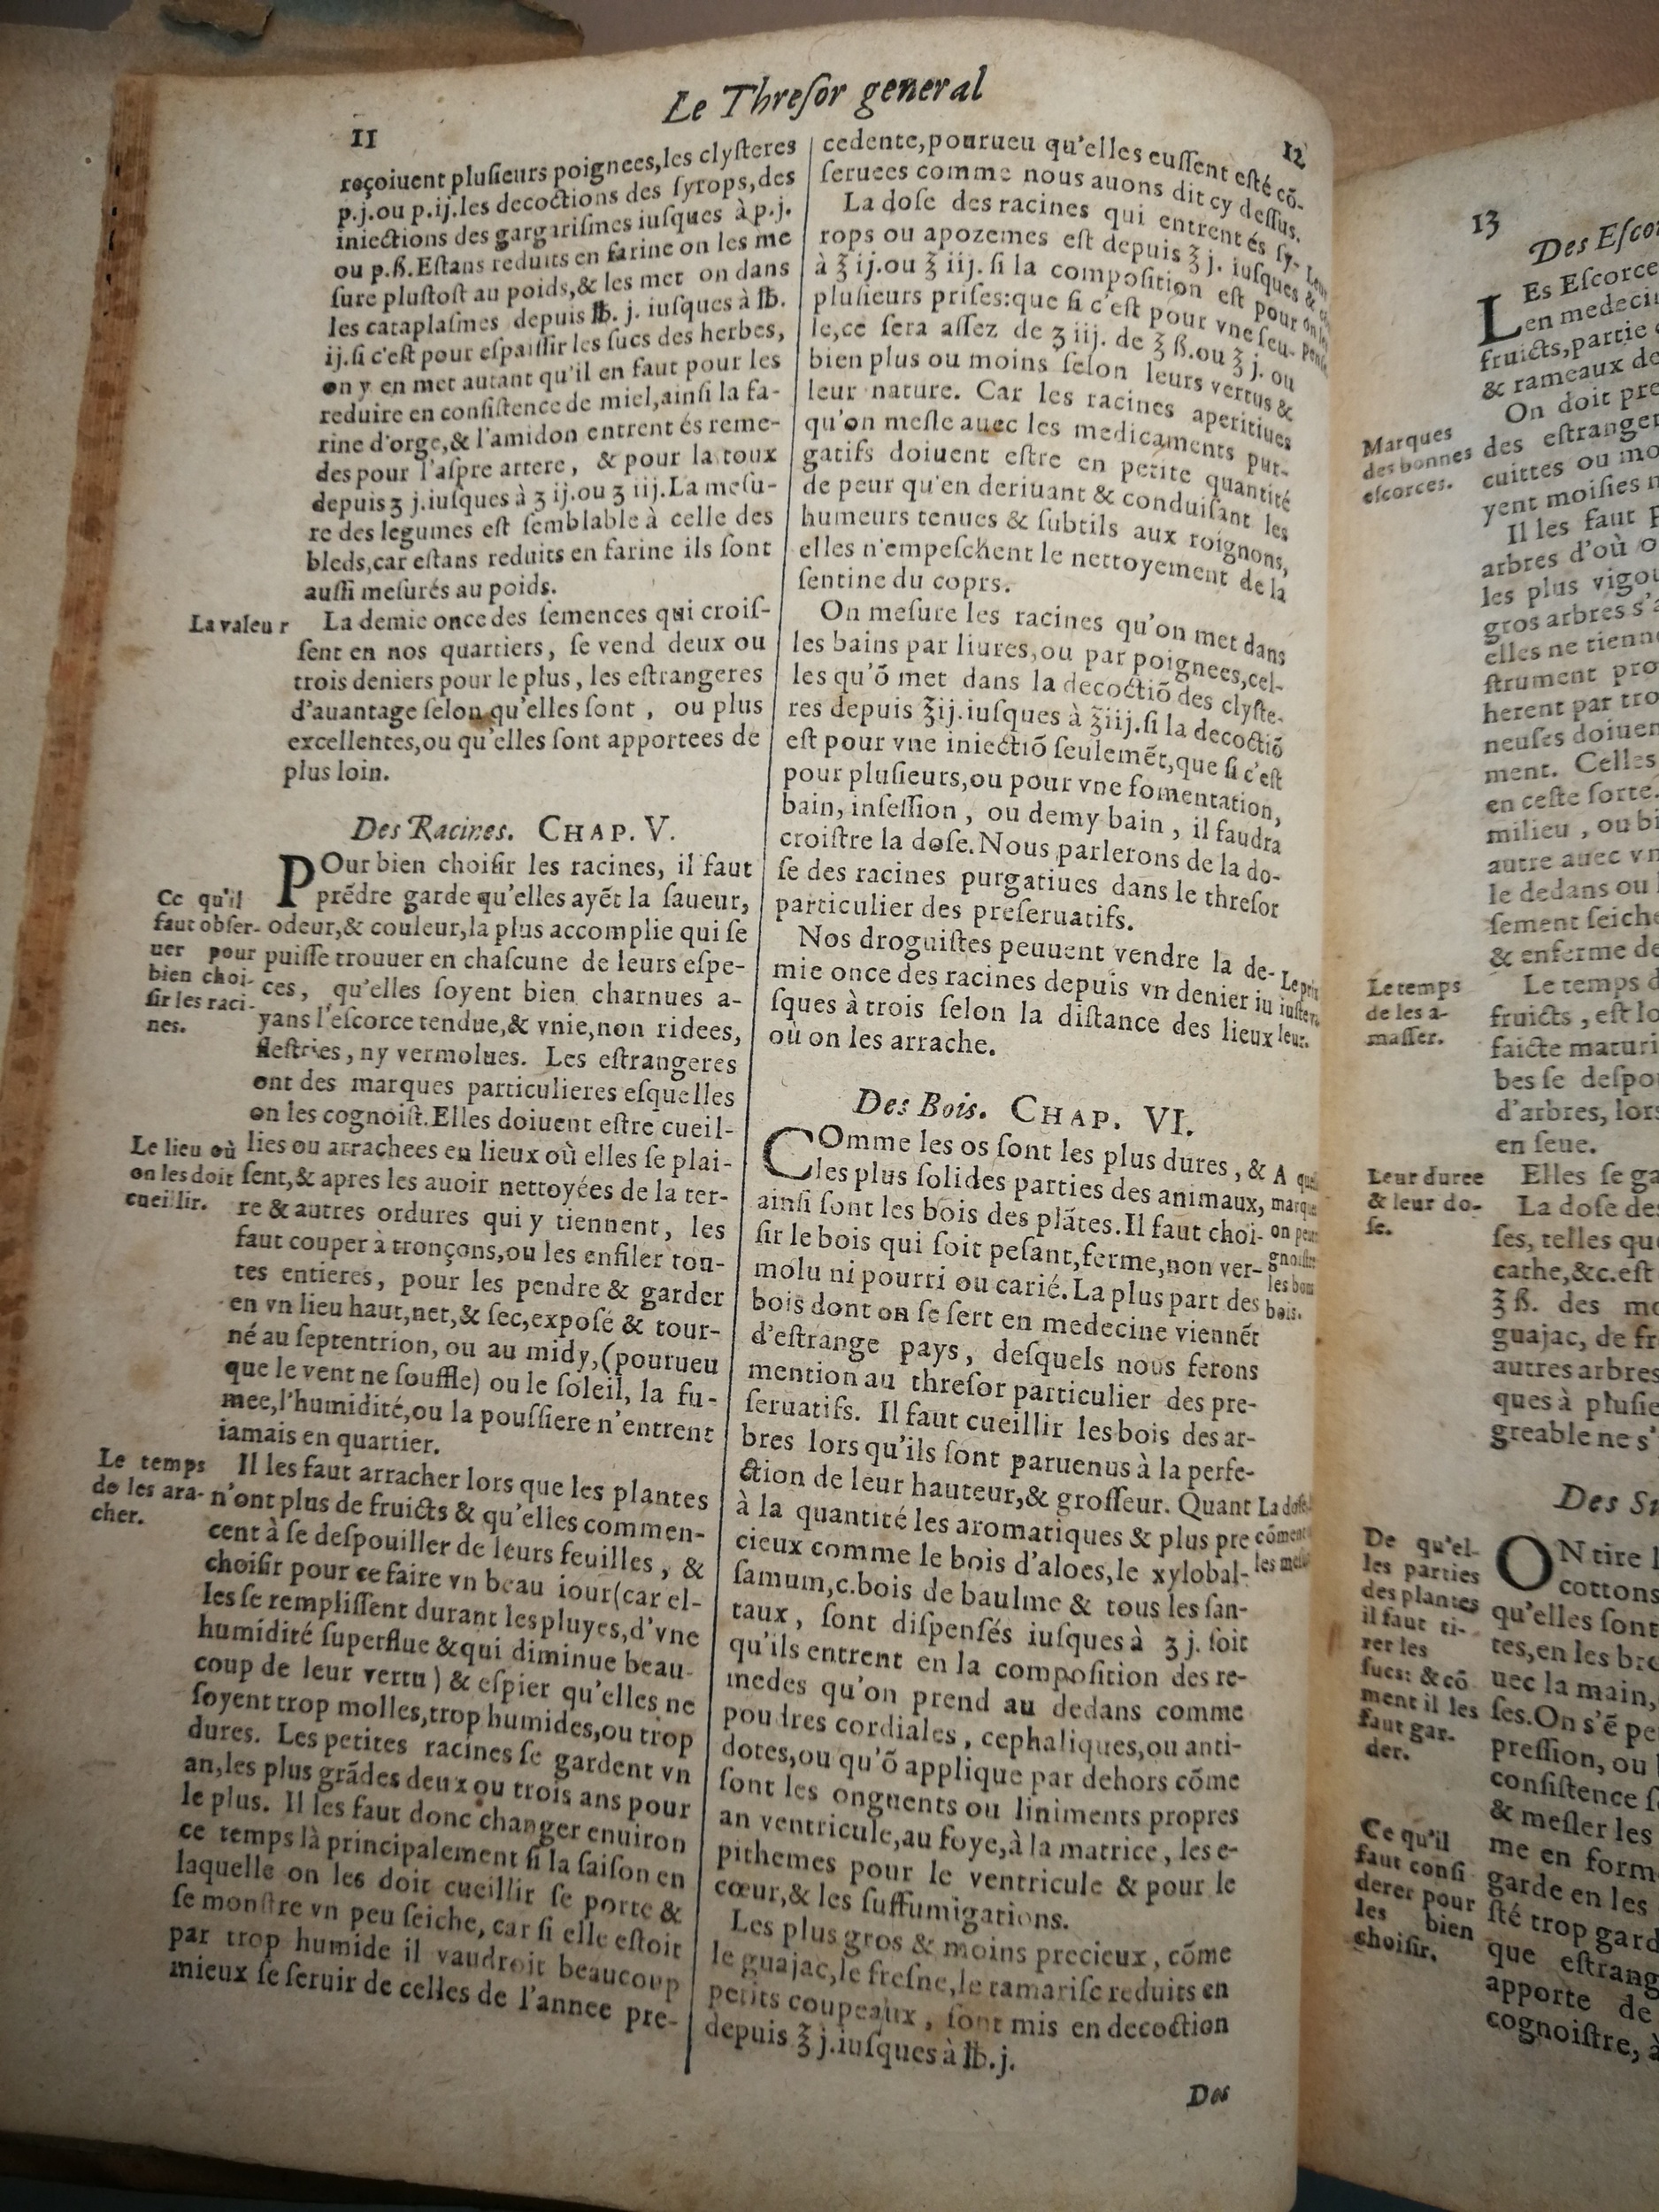 Le Threſor general
11
reçoiuent pluſieurs poignees,les clyſteres
p.j.ou p.ij.les decoctions des ſyrops,des
iniections des gargariſmes iuſques à p.j.
ou p.ß.Eſtans reduits en farine on les me
ſure pluſtoſt au poids,& les met on dans
les cataplaſmes depuis ℔. j. iuſques à ℔.
ij.ſi c'eſt pour eſpaiſſir les ſucs des herbes,
on y en met autant qu'il en faut pour les
reduire en conſiſtence de miel,ainſi la fa-
rine d'orge,& l'amidon entrent és reme-
des pour l'aſpre artere, & pour la toux
depuis ʒ j.iuſques à ʒ ij.ou ʒ iij.La meſu-
re des legumes eſt ſemblable à celle des
bleds,car eſtans reduits en farine ils ſont
auſſi meſurés au poids.
La valeur
La demie once des ſemences qui croiſ-
ſent en nos quartiers, ſe vend deux ou
trois deniers pour le plus, les eſtrangeres
d'auantage ſelon qu'elles ſont , ou plus
excellentes,ou qu'elles ſont apportees de
plus loin.
Des Racines. CHAP. V.
Ce qu'il
faut obſer-
uer pour
bien choi-
ſir les raci-
nes.
POur bien choiſir les racines, il faut
prẽdre garde qu'elles ayẽt la ſaueur,
odeur,& couleur,la plus accomplie qui ſe
puiſſe trouuer en chaſcune de leurs eſpe-
ces, qu'elles ſoyent bien charnues a-
yans l'eſcorce tendue,& vnie,non ridees,
fleſtries, ny vermolues. Les eſtrangeres
ont des marques particulieres eſquelles
on les cognoiſt.Elles doiuent eſtre cueil-
Le lieu où
on les doit
cueillir.
lies ou arrachees en lieux où elles ſe plai-
ſent,& apres les auoir nettoyées de la ter-
re & autres ordures qui y tiennent, les
faut couper à tronçons,ou les enfiler tou-
tes entieres, pour les pendre & garder
en vn lieu haut,net,& ſec,expoſé & tour-
né au ſeptentrion, ou au midy,(pourueu
que le vent ne ſouffle) ou le ſoleil, la fu-
mee,l'humidité,ou la pouſſiere n'entrent
iamais en quartier.
Le temps
de les ara-
cher.
Il les faut arracher lors que les plantes
n'ont plus de fruicts & qu'elles commen-
cent à ſe deſpouiller de leurs feuilles, &
choiſir pour ce faire vn beau iour(car el-
les ſe rempliſſent durant les pluyes,d'vne
humidité ſuperflue & qui diminue beau-
coup de leur vertu) & eſpier qu'elles ne
ſoyent trop molles,trop humides,ou trop
dures. Les petites racines ſe gardent vn
an,les plus grãdes deux ou trois ans pour
le plus. Il les faut donc changer enuiron
ce temps là principalement ſi la ſaiſon en
laquelle on les doit cueillir ſe porte &
ſe monſtre vn peu ſeiche, car ſi elle eſtoit
par trop humide il vaudroit beaucoup
mieux ſe ſeruir de celles de l'annee pre-
12
cedente,pourueu qu'elles euſſent eſté cõ-
ſeruees comme nous auons dit cy deſſus.
La doſe des racines qui entrent és ſy-
rops ou apozemes eſt depuis ℥ j. iuſques
à ℥ ij.ou ℥ iij. ſi la compoſition eſt pour
pluſieurs priſes:que ſi c'eſt pour vne ſeu-
le,ce ſera aſſez de ʒ iij. de ℥ ß.ou ℥ j. ou
bien plus ou moins ſelon leurs vertus &
leur nature. Car les racines aperitiues
qu'on meſle auec les medicaments pur-
gatifs doiuent eſtre en petite quantité
de peur qu'en deriuant & conduiſant les
humeurs tenues & ſubtils aux roignons,
elles n'empeſchent le nettoyement de la
ſentine du coprs.
On meſure les racines qu'on met dans
les bains par liures,ou par poignees,cel-
les qu'õ met dans la decoctiõ des clyſte-
res depuis ℥ij.iuſques à ℥iij.ſi la decoctiõ
eſt pour vne iniectiõ ſeulemẽt,que ſi c'eſt
pour pluſieurs,ou pour vne fomentation,
bain, inſeſſion , ou demy bain , il faudra
croiſtre la doſe.Nous parlerons de la do-
ſe des racines purgatiues dans le threſor
particulier des preſeruatifs.
Nos droguiſtes peuuent vendre la de-
mie once des racines depuis vn denier iu
ſques à trois ſelon la diſtance des lieux
où on les arrache.
leur.
Des Bois. CHAP. VI.
COmme les os ſont les plus dures , &
les plus ſolides parties des animaux,
ainſi ſont les bois des plãtes.Il faut choi-
ſir le bois qui ſoit peſant,ferme,non ver-
molu ni pourri ou carié.La plus part des
bois dont on ſe ſert en medecine viennẽt
d'eſtrange pays, deſquels nous ferons
mention au threſor particulier des pre-
ſeruatifs. Il faut cueillir les bois des ar-
bres lors qu'ils ſont paruenus à la perfe-
ction de leur hauteur,& groſſeur. Quant
à la quantité les aromatiques & plus pre
cieux comme le bois d'aloes,le xylobal-
ſamum,c.bois de baulme & tous les ſan-
taux, ſont diſpenſés iuſques à ʒ j. ſoit
qu'ils entrent en la compoſition des re-
medes qu'on prend au dedans comme
poudres cordiales, cephaliques,ou anti-
dotes,ou qu'õ applique par dehors cõme
ſont les onguents ou liniments propres
an ventricule,au foye,à la matrice, les e-
pithemes pour le ventricule & pour le
cœur,& les ſuffumigations.
bois.
Les plus gros & moins precieux, cõme
le guajac,le freſne,le tamariſc reduits en
petits coupeaux , ſont mis en decoction
depuis ℥ j.iuſques à ℔.j.
Des
13
LEs Eſcorce
fruicts,partie
& rameaux de
On doit pre
Marques
des bonnes
eſcorces.
des eſtranger
cuittes ou mo
yent moiſies
Il les faut
arbres d'où
les plus vigou
gros arbres
elles ne tienn
ſtrument pro
herent par tro
neuſes doiuen
ment. Celles
en ceſte ſorte.
milieu , ou bi
autre auec vn
le dedans ou
ſement ſeiche
& enferme de
Le temps
de les a-
maſſer.
Le temps d
fruicts , eſt lo
faicte maturi
bes ſe deſpo
d'arbres, lors
en ſeue.
Leur duree
& leur do-
ſe.
Elles ſe ga
La doſe de
ſes, telles que
cathe,&c.eſt
℥ ß. des mo
guajac, de fr
autres arbres
ques à pluſie
greable ne s'
Des Su
De qu'el-
les parties
des plantes
il faut ti-
rer les
ſucs: & cõ
ment il les
faut gar-
der.
ON tire l
cottons
qu'elles ſont
tes,en les bro
uec la main,
ſes.On s'ẽ pe
preſſion, ou
conſiſtence ſ
& meſler les
Ce qu'il
faut conſi
derer pour
les bien
choiſir.
me en form
garde en les
ſté trop gard
que eſtrang
apporte de
cognoiſtre, à